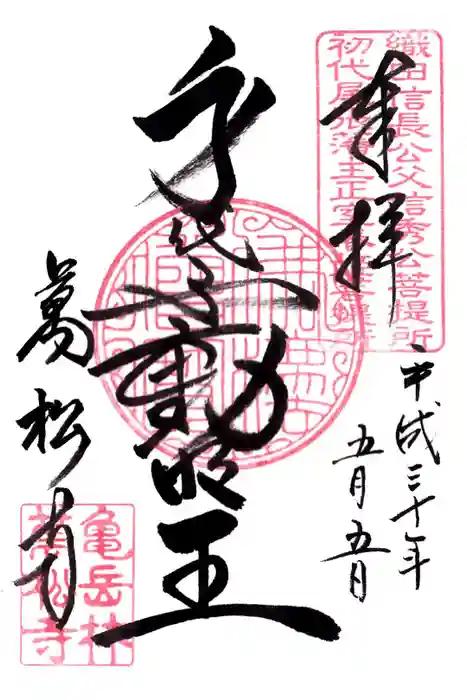 織田信長公父信秀公菩提所
初代尾張藩主正室菩提所
奉拝
平成三十年
五月五日
身代不動明王
萬松寺
亀岳林
萬松寺